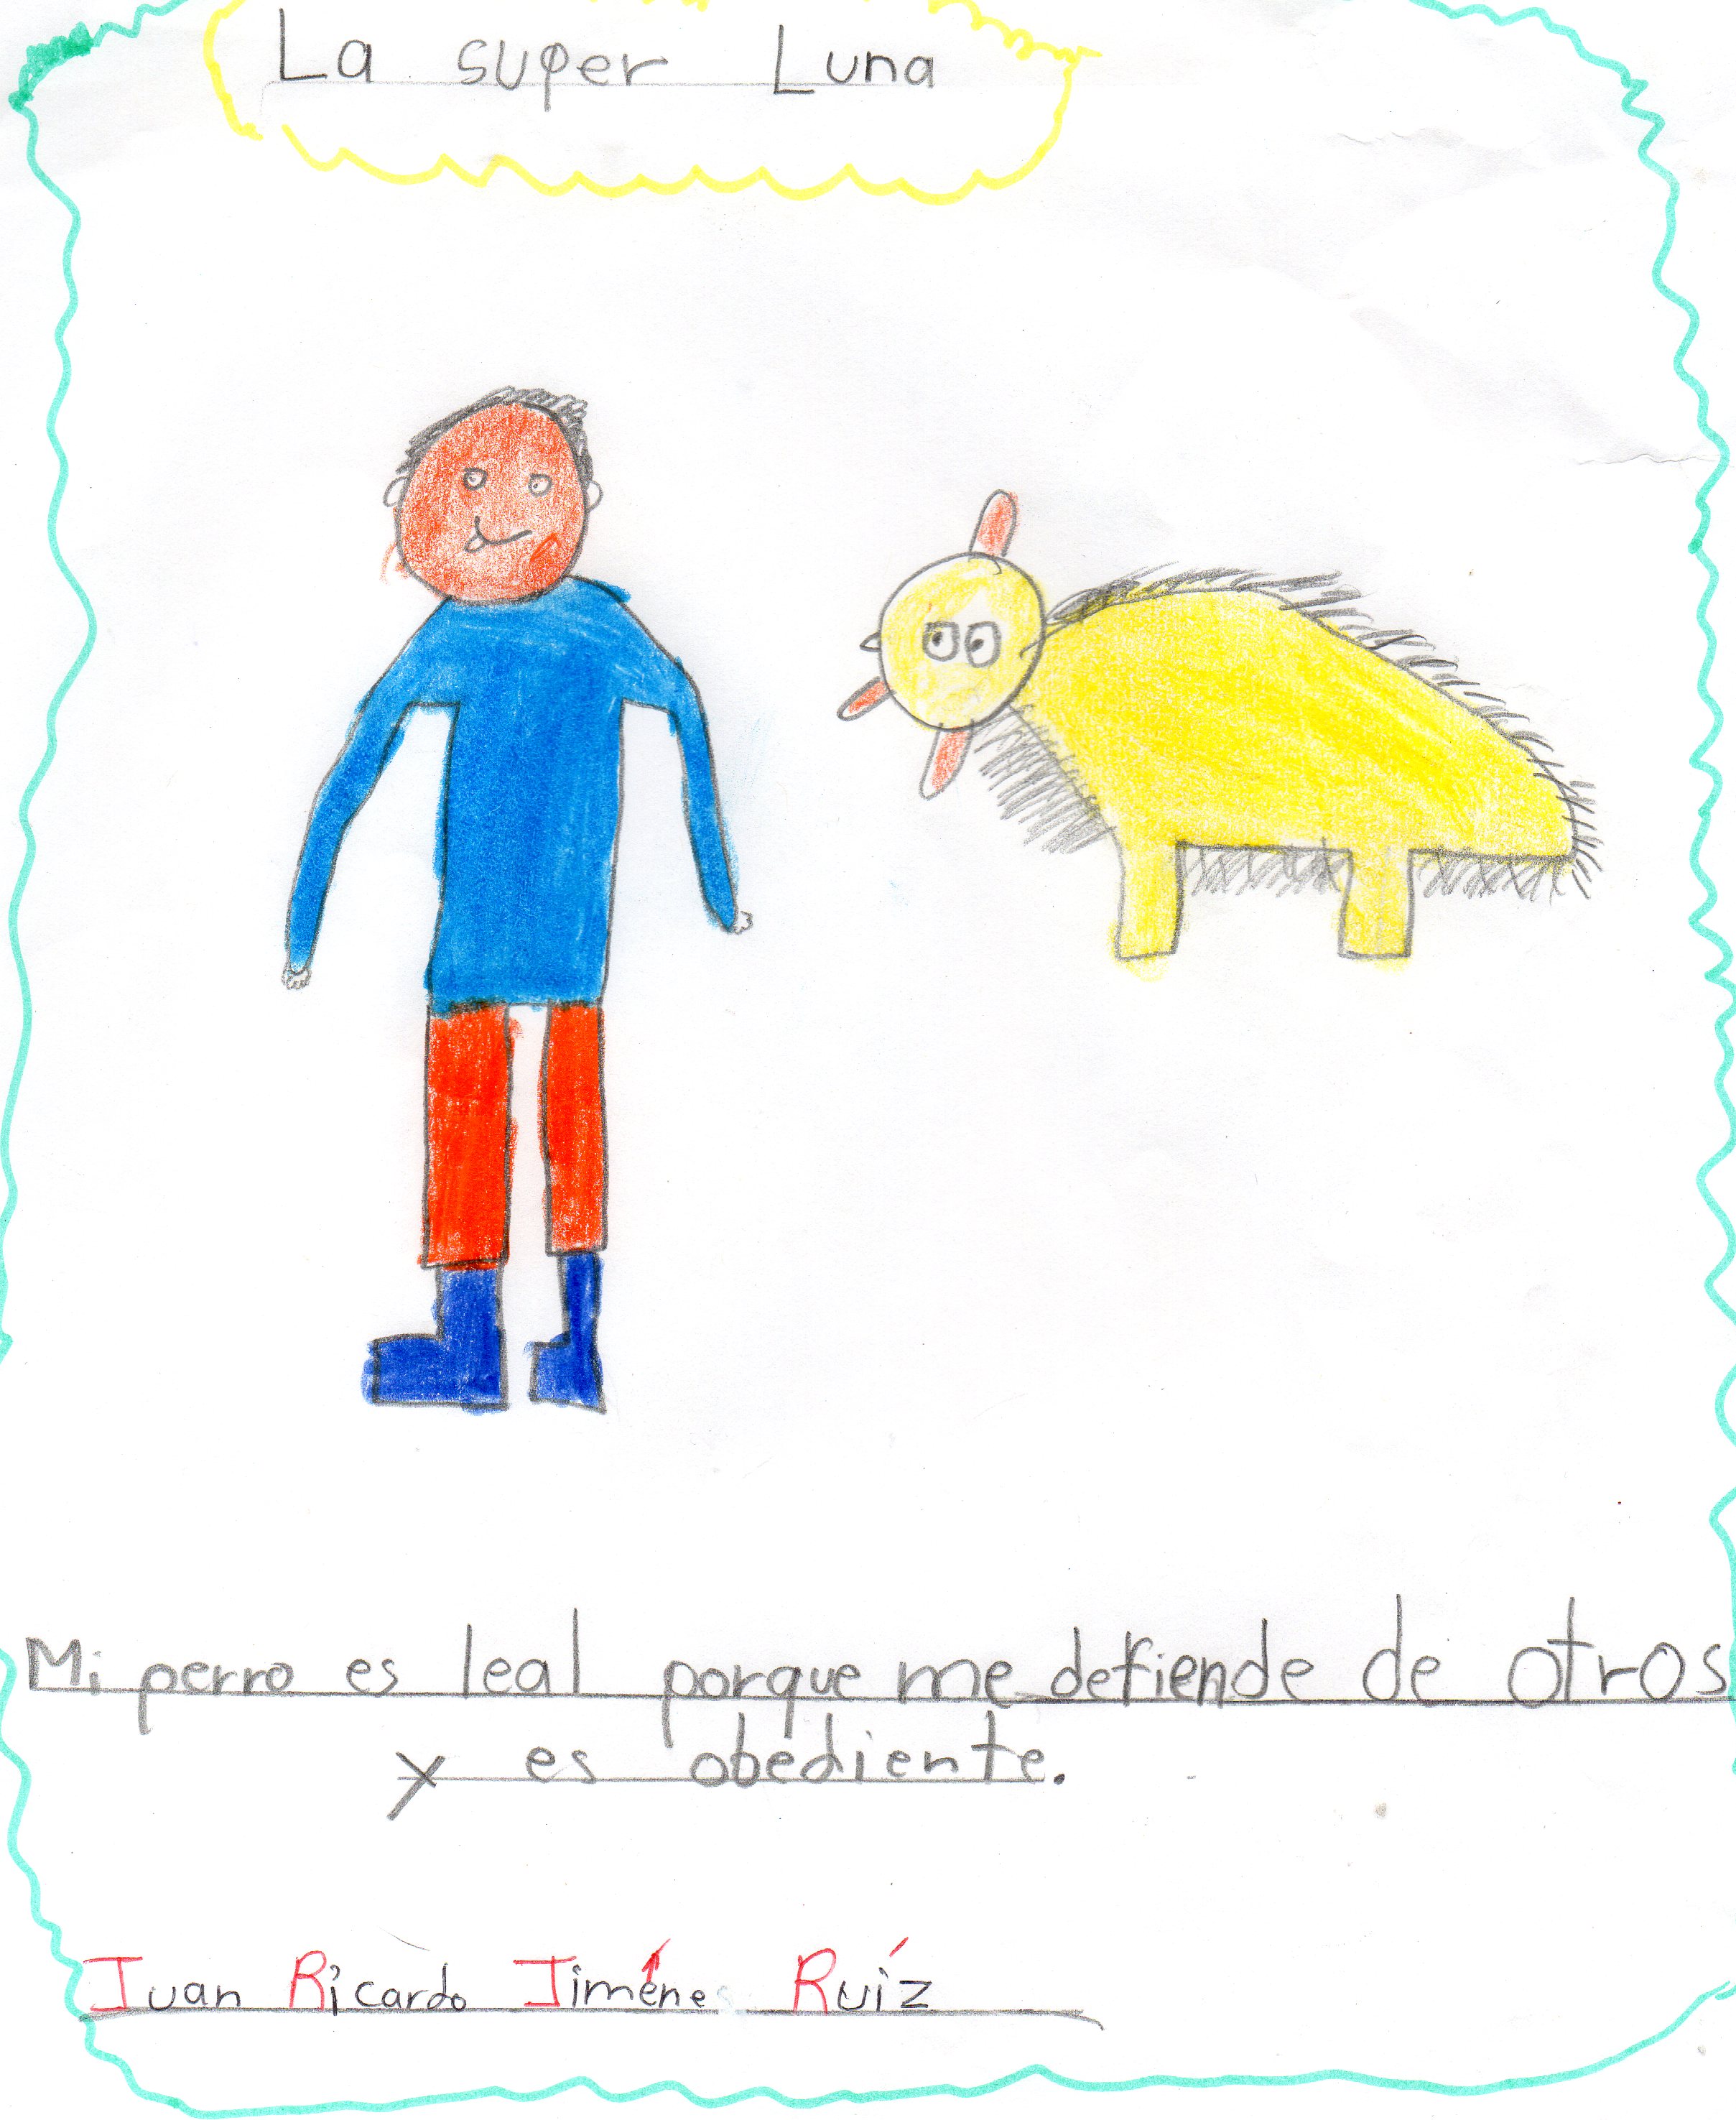 La super Luna
Mi perro es leal porque me defiende de otros
y es obediente.
Juan Ricardo Jiménes Ruíz